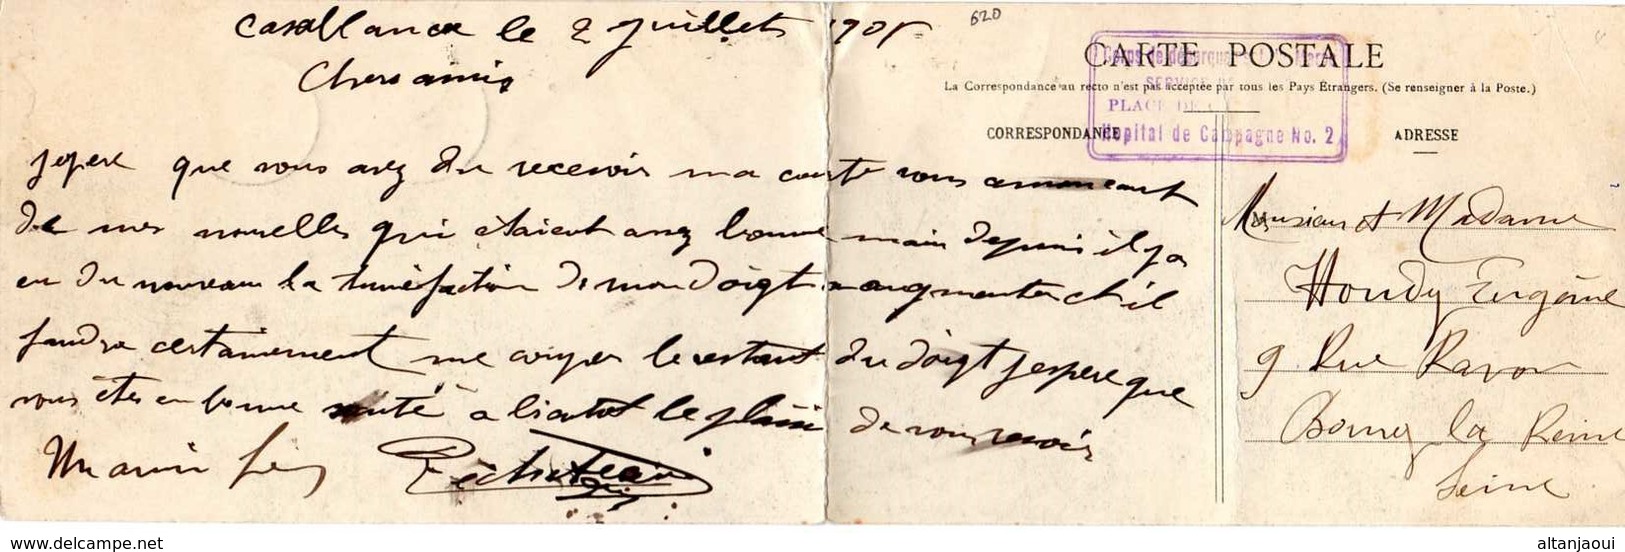 Casablanca le 2 juillet 1908
620
Chers amis
CARTE POSTALE
La Correspondance au recto n'est pas acceptée par tous les Pays Étrangers. (Se renseigner à la Poste.)
CORRESPONDANCE
ADRESSE
Corps de débarquement
SERVICE DE
PLACE DE
Hopital de Campagne No. 2
jespere que vous avez du recevoir ma carte vous anoncant
de mes nouvelles qui étaient assez bonne main depuis il y a
eu du nouveau la tumefaction de mon doigt a augmenter et il
faudra certainement me couper le restant du doigt jespere que
vous êtes en bonne santé a biantot le plaisir de vous revoir
Un ami
Monsieur et Madame
Houdy Eugène
9 Rue Ravon
Bourg la Reine
Seine
delcampe.net
altanjaoui